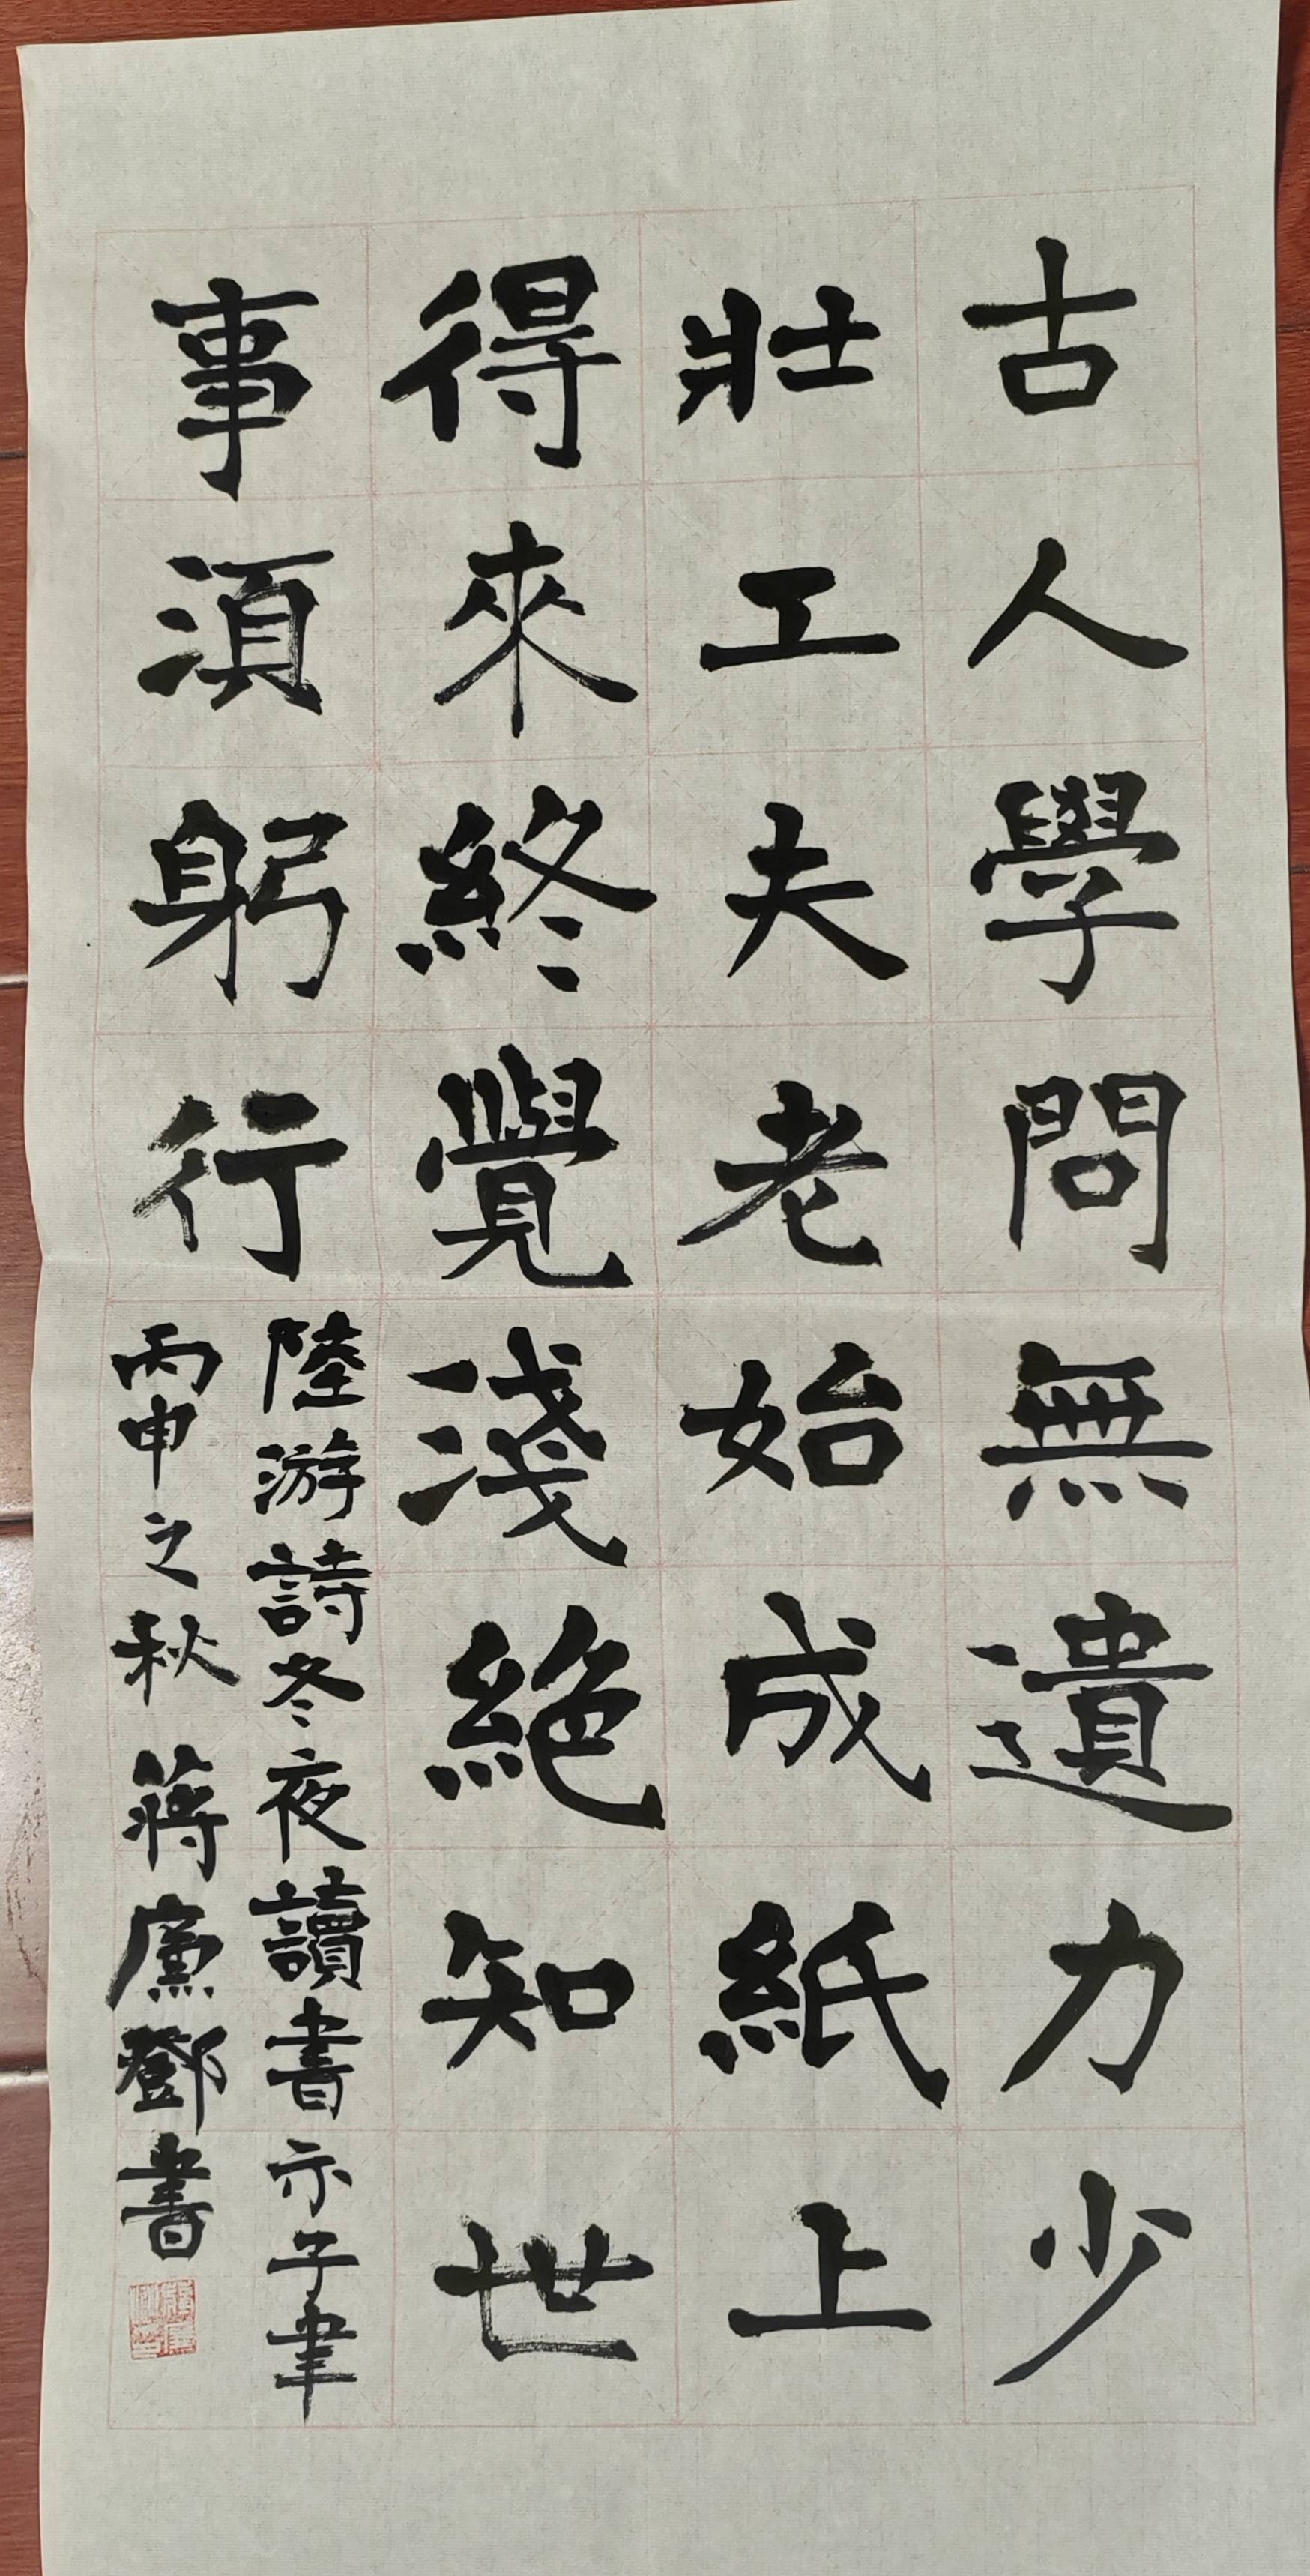 古人學問無遺力少
壯工夫老始成紙上
得來終覺淺絕知世
事須躬行
陸游詩冬夜讀書示子聿
丙申之秋 蔣廉鄧書